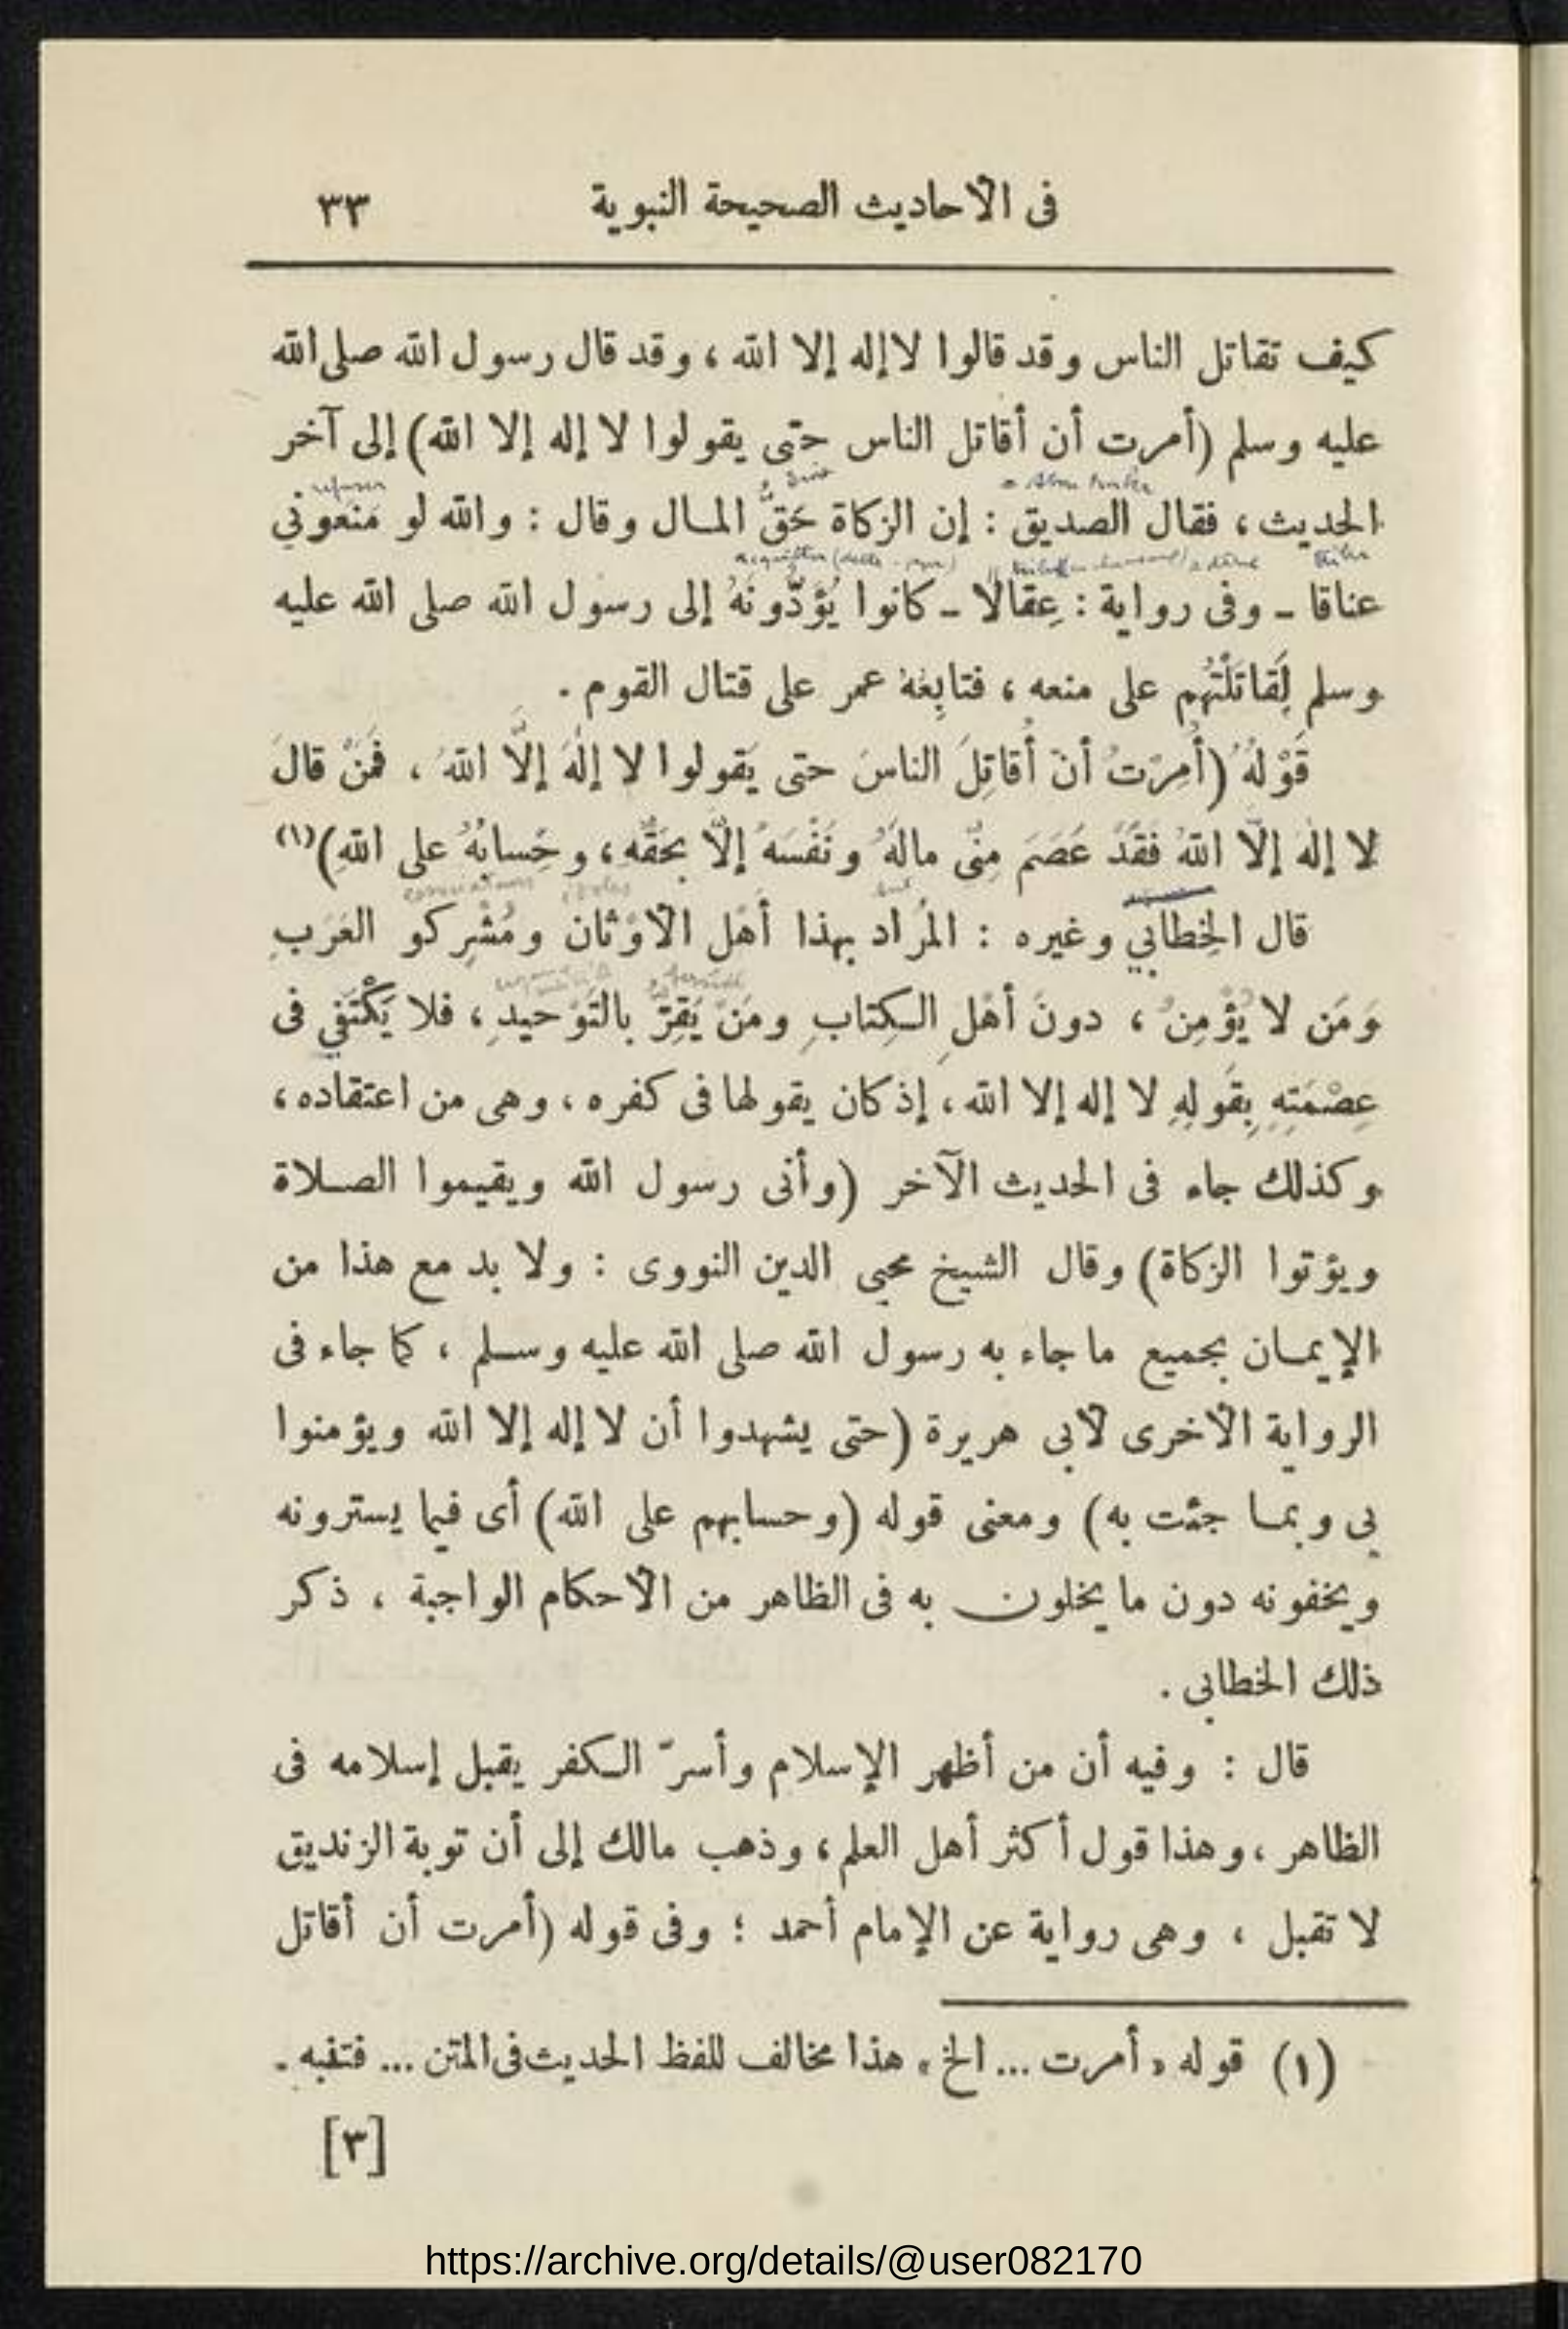 فى الأحاديث الصحيحة النبوية ٣٣
كيف تقاتل الناس وقد قالوا لا إله إلا الله ، وقد قال رسول الله صلى الله
عليه وسلم (أمرت أن أقاتل الناس حتى يقولوا لا إله إلا الله) إلى آخر
الحديث ، فقال الصديق : إن الزكاة حَقُّ المال وقال : والله لو مَنعوني
عناقا ـ وفى رواية : عِقَالًا ـ كانوا يُؤَدُّونَهُ إلى رسول الله صلى الله عليه
وسلم لَقَاتَلْتُهُم على منعه ، فتابعَهُ عمر على قتال القوم .
قَوْلهُ (أُمِرْتُ أنْ أُقاتِلَ الناسَ حتى يَقولوا لا إلٰهَ إلَّا اللهُ ، فَمَنْ قالَ
لا إلٰهَ إلَّا اللهُ فَقَدْ عَصَمَ مِنِّى مالَهُ ونَفْسَهُ إلَّا بِحَقِّهِ ، وحِسابُهُ على اللهِ)(١)
قال الخِطابي وغيره : المُرَاد بهذا أهْل الأوْثان ومُشْرِكو العَرَبِ
وَمَن لا يُؤْمِنُ ، دونَ أهْلِ الكِتابِ ومَنْ يَقِرّ بالتَوْحيدِ ، فلا يَكْتَفي فى
عِصْمَتِهِ بِقَولِهِ لا إله إلا الله ، إذ كان يقولها فى كفره ، وهى من اعتقاده ،
وكذلك جاء فى الحديث الآخر (وأنى رسول الله ويقيموا الصلاة
ويؤتوا الزكاة) وقال الشيخ محيى الدين النووى : ولا بد مع هذا من
الإيمان بجميع ما جاء به رسول الله صلى الله عليه وسلم ، كما جاء فى
الرواية الأخرى لأبى هريرة (حتى يشهدوا أن لا إله إلا الله ويؤمنوا
بى وبما جئت به) ومعنى قوله (وحسابهم على الله) أى فيما يسترونه
ويخفونه دون ما يخلون به فى الظاهر من الأحكام الواجبة ، ذكر
ذلك الخطابى .
قال : وفيه أن من أظهر الإسلام وأسرّ الكفر يقبل إسلامه فى
الظاهر ، وهذا قول أكثر أهل العلم ، وذهب مالك إلى أن توبة الزنديق
لا تقبل ، وهى رواية عن الإمام أحمد ؛ وفى قوله (أمرت أن أقاتل
(١) قوله «أمرت ... الخ» هذا مخالف للفظ الحديث فى المتن ... فتنبه .
[٣]
https://archive.org/details/@user082170